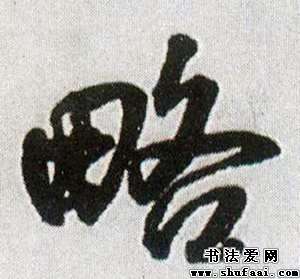 略
书法爱网
www.shufaai.com